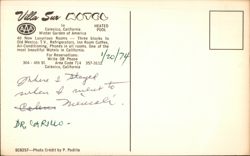 Villa Sur MOTEL
AAA
HEATED
POOL
Calexico, California
Winter Garden of America
40 New Luxurious Rooms — Three blocks to
Old Mexico. T.V., Refrigerators, Ice Room Coffee,
Air-Conditioning, Phones in all rooms. One of the
most beautiful Motels in California.
For Reservations:
Write OR Phone
304 - 4th St. Area Code 714 357-3112
Calexico, California
1/20/74
where I stayed
when I went to
Mexicali
DR CARILLO -
SC8257—Photo Credit by P. Padilla